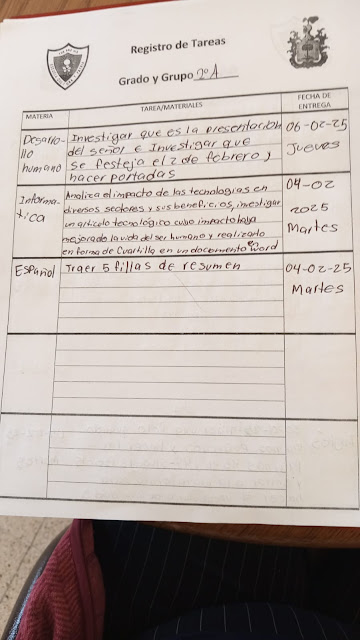 Registro de Tareas
Grado y Grupo 2º A
MATERIA
TAREA/MATERIALES
FECHA DE
ENTREGA
Desarro-
llo
humano
Investigar que es la presentacion
del señor e Investigar que
se festeja el 2 de febrero,
hacer portadas
06-02-25
Jueves
Informa-
tica
Analiza el impacto de las tecnologías en
diversos sectores y sus beneficios, investigar
un artículo tecnológico cullo impacto haya
mejorado la vida del ser humano y realizarlo
en forma de Cuartilla en un documento en word
04-02
2025
Martes
Español
Traer 5 fillas de resumen
04-02-25
Martes